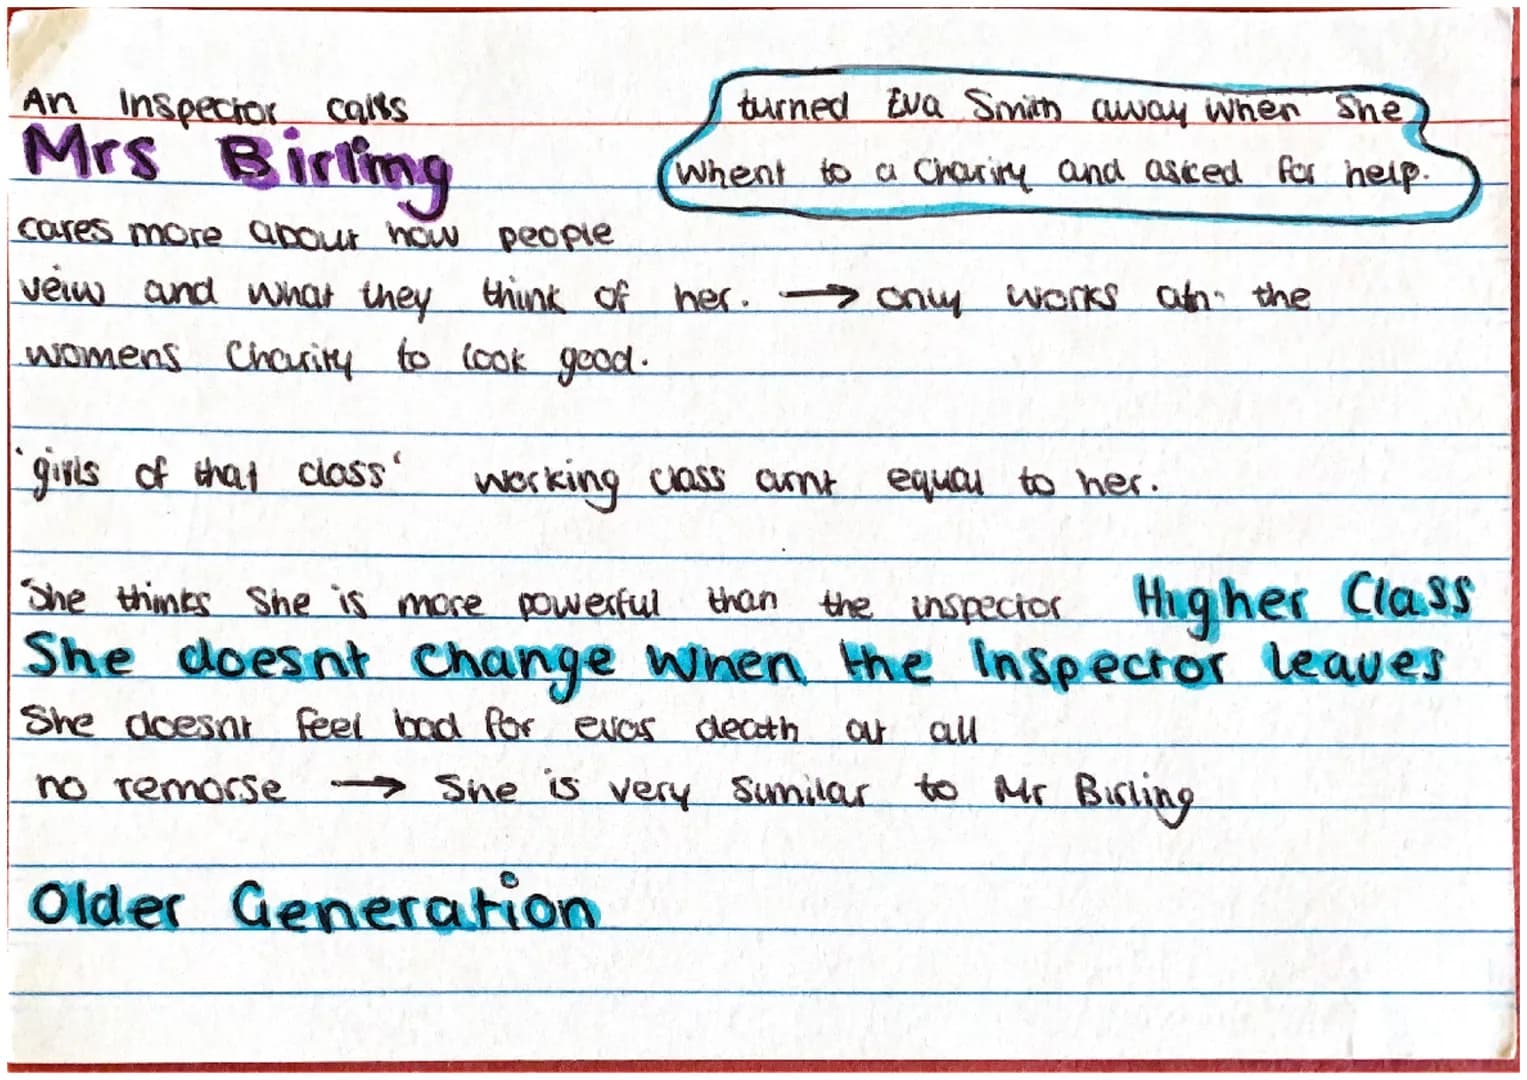 An Inspector calls
Mrs Birling
turned Eva Smith away when She
Whent to a Charity and asked for help.
cares more about how people
veiw and what they think of her. → only works at the
womens Charity to look good.
'girls of that class' working class arnt equal to her.
She thinks She is more powerful than the inspector Higher Class
She doesnt change when the Inspector leaves
She doesnt feel bad for evas death at all
no remorse → She is very similar to Mr Birling
Older Generation